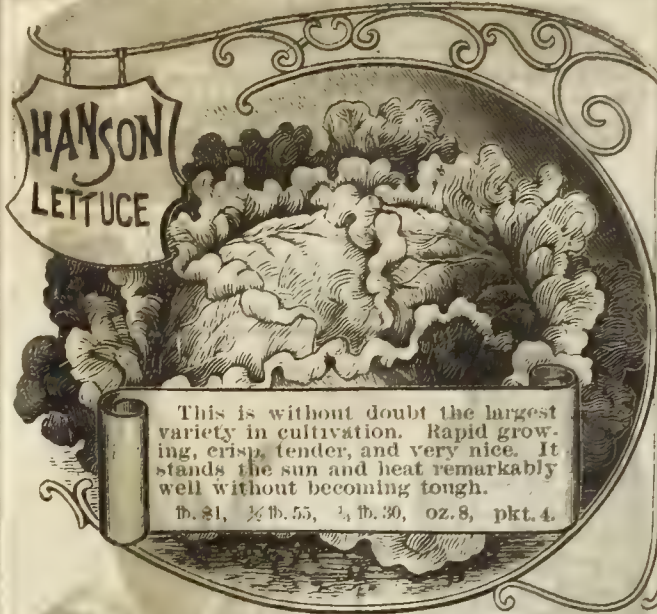 HANSON
LETTUCE
This is without doubt the largest
variety in cultivation. Rapid grow-
ing, crisp, tender, and very nice. It
stands the sun and heat remarkably
well without becoming tough.
℔. $1, ½ ℔. 55, ¼ ℔. 30, oz. 8, pkt. 4.